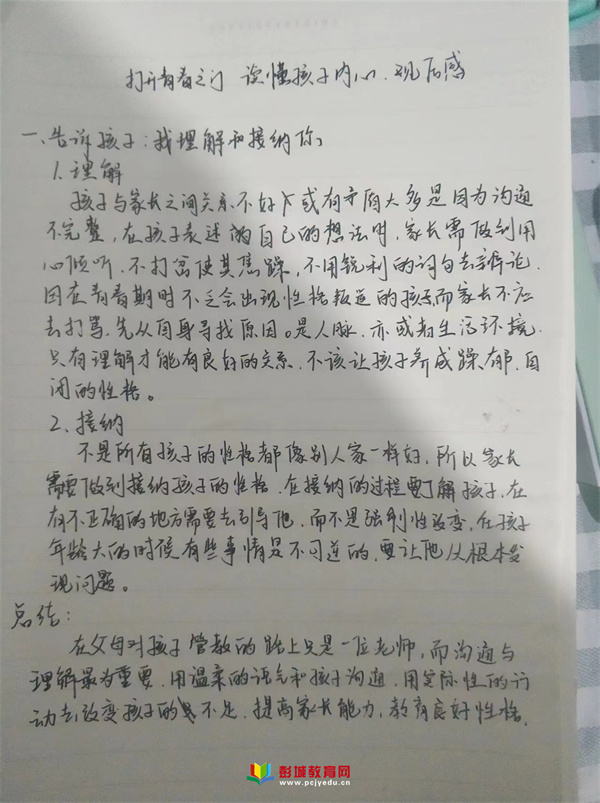 打开青春之门 读懂孩子内心.观后感
一、告诉孩子:我理解和接纳你
1.理解
孩子与家长之间关系不好or或有矛盾大多是因为沟通
不完整,在孩子表述的自己的想法时,家长需做到用
心倾听.不打岔使其焦躁,不用锐利的词句去辩论.
因在青春期时不乏会出现性格叛逆的孩子而家长不应
去打骂.先从自身寻找原因。是人脉,亦或者生活环境.
只有理解才能有良好的关系.不该让孩子养成躁、郁、自
闭的性格。
2、接纳
不是所有孩子的性格都像别人家一样好,所以家长
需要做到接纳孩子的性格.在接纳的过程要了解孩子,在
有不正确的地方需要去引导他.而不是强制性改变,在孩子
年龄大的时候有些事情是不可逆的,要让他从根本发
现问题。
总结:
在父母对孩子管教的路上只是一位老师,而沟通与
理解最为重要.用温柔的语气和孩子沟通.用实际性的行
动去改变孩子的不足.提高家长能力,教育良好性格.
彭城教育网
www.pcjyedu.cn